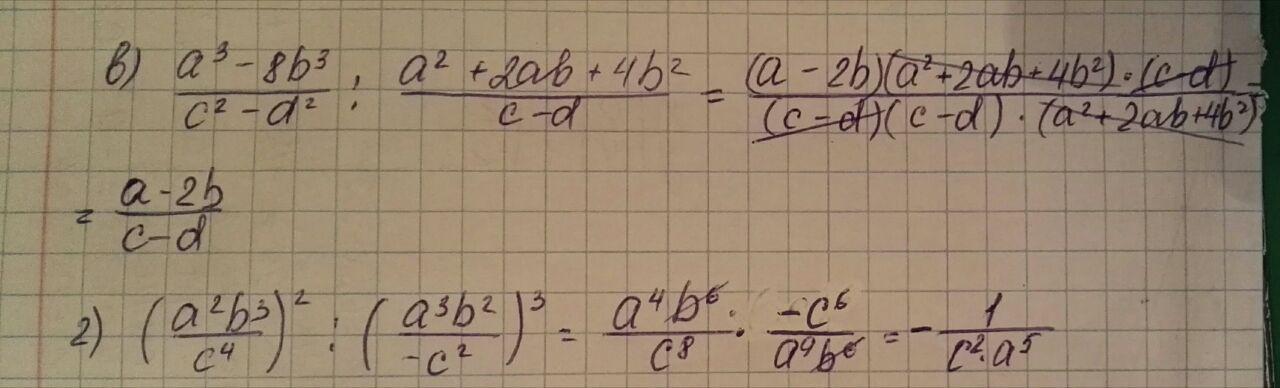 в) (a³ - 8b³)/(c² - d²) : (a² + 2ab + 4b²)/(c - d) = ((a - 2b)(a² + 2ab + 4b²) · (c - d))/((c - d)(c - d) · (a² + 2ab + 4b²)) =
= (a - 2b)/(c - d)
г) (a²b³/c⁴)² : (a³b²/-c²)³ = a⁴b⁶/c⁸ · -c⁶/a⁹b⁶ = - 1/(c² · a⁵)